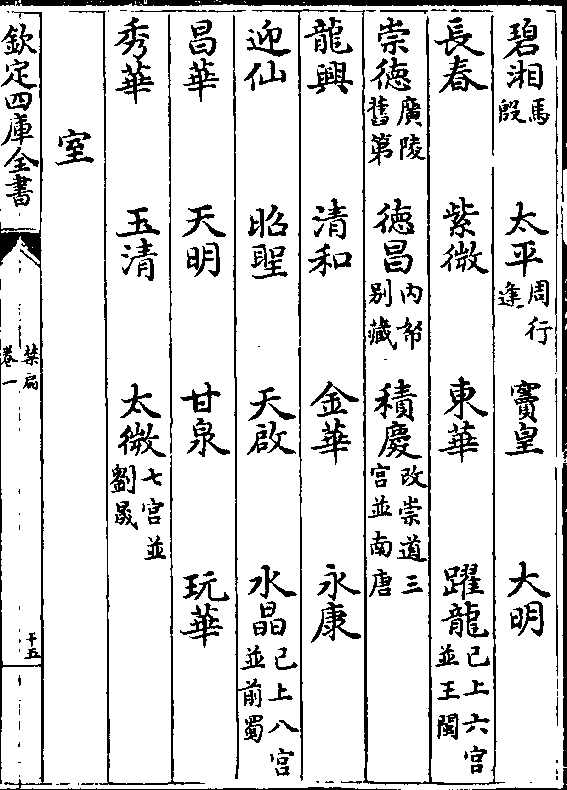 碧湘馬殷 太平周行逢 寶皇 大明
長春 紫微 東華 躍龍已上六宫並王閩
崇德廣陵舊第 德昌内帑别藏 積慶改崇道三宫並南唐
龍興 清和 金華 永康
迎仙 昭聖 天啟 水晶已上八宫並前蜀
昌華 天明 甘泉 玩華
秀華 玉清 太微七宫並劉晟
室
欽定四庫全書 禁扁 卷一 十五